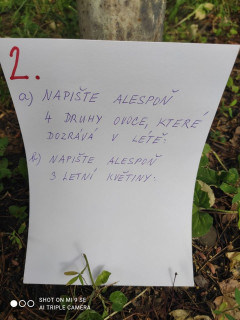 2.
a) NAPIŠTE ALESPOŇ
4 DRUHY OVOCE, KTERÉ
DOZRÁVÁ V LÉTĚ:
b) NAPIŠTE ALESPOŇ
3 LETNÍ KVĚTINY:
SHOT ON MI 9 SE
AI TRIPLE CAMERA